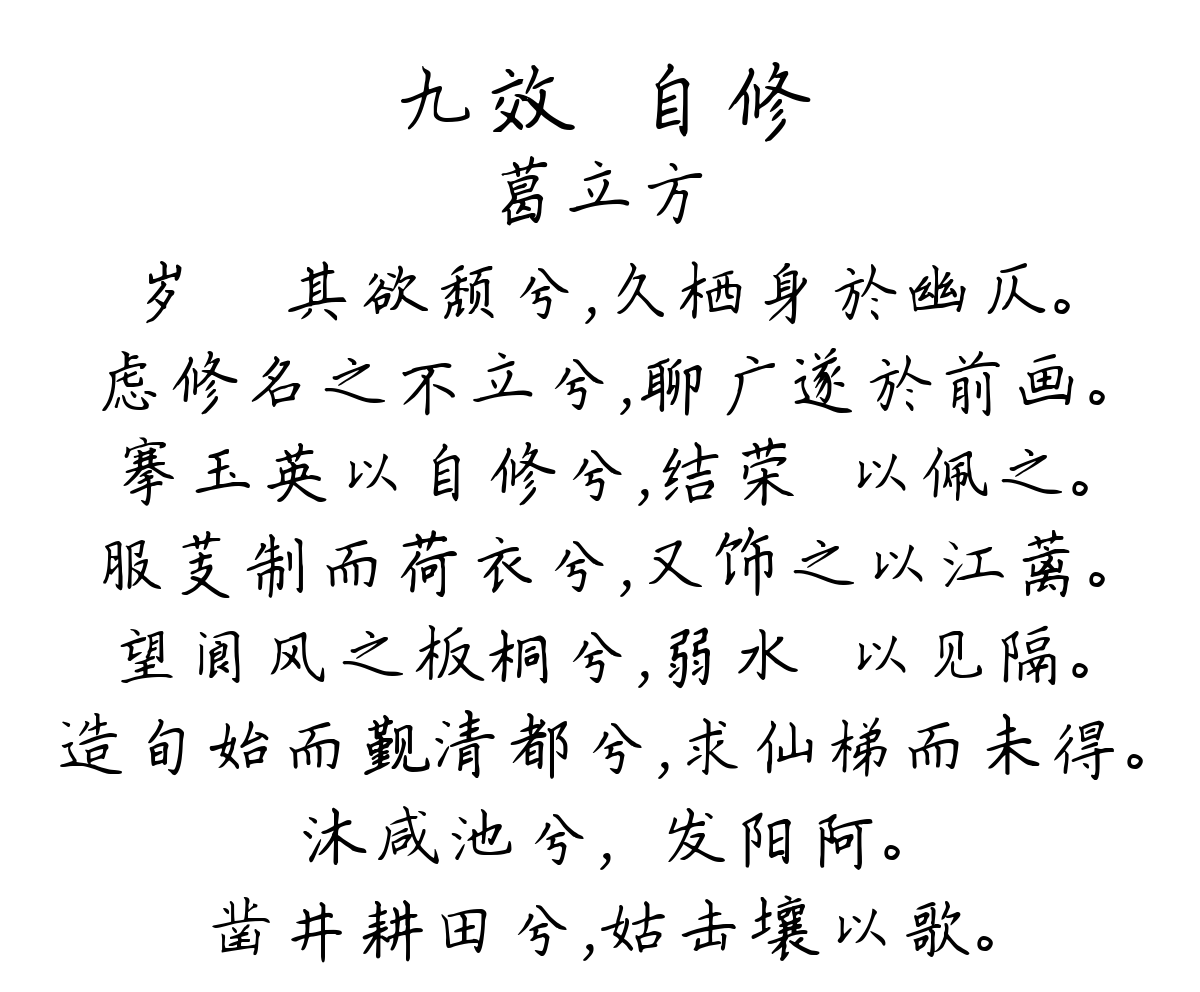 九效 自修
葛立方
岁 其欲颓兮,久栖身於幽仄。
虑修名之不立兮,聊广遂於前画。
搴玉英以自修兮,结荣 以佩之。
服芰制而荷衣兮,又饰之以江蓠。
望阆风之板桐兮,弱水 以见隔。
造旬始而觐清都兮,求仙梯而未得。
沐咸池兮, 发阳阿。
凿井耕田兮,姑击壤以歌。